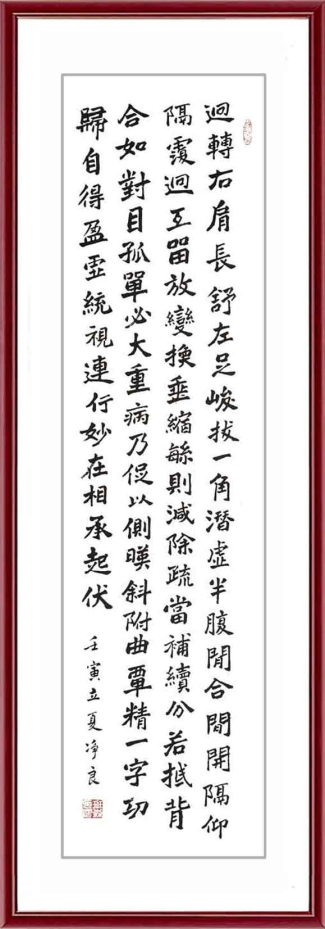 迴轉右肩長舒左足峻拔一角潛虛半腹閒合間開隔仰
隔覆迴互留放變換垂縮緐則減除疏當補續分若抵背
合如對目孤單必大重病乃促以側暎斜附曲覃精一字功
歸自得盈虛統視連行妙在相承起伏
壬寅立夏净良